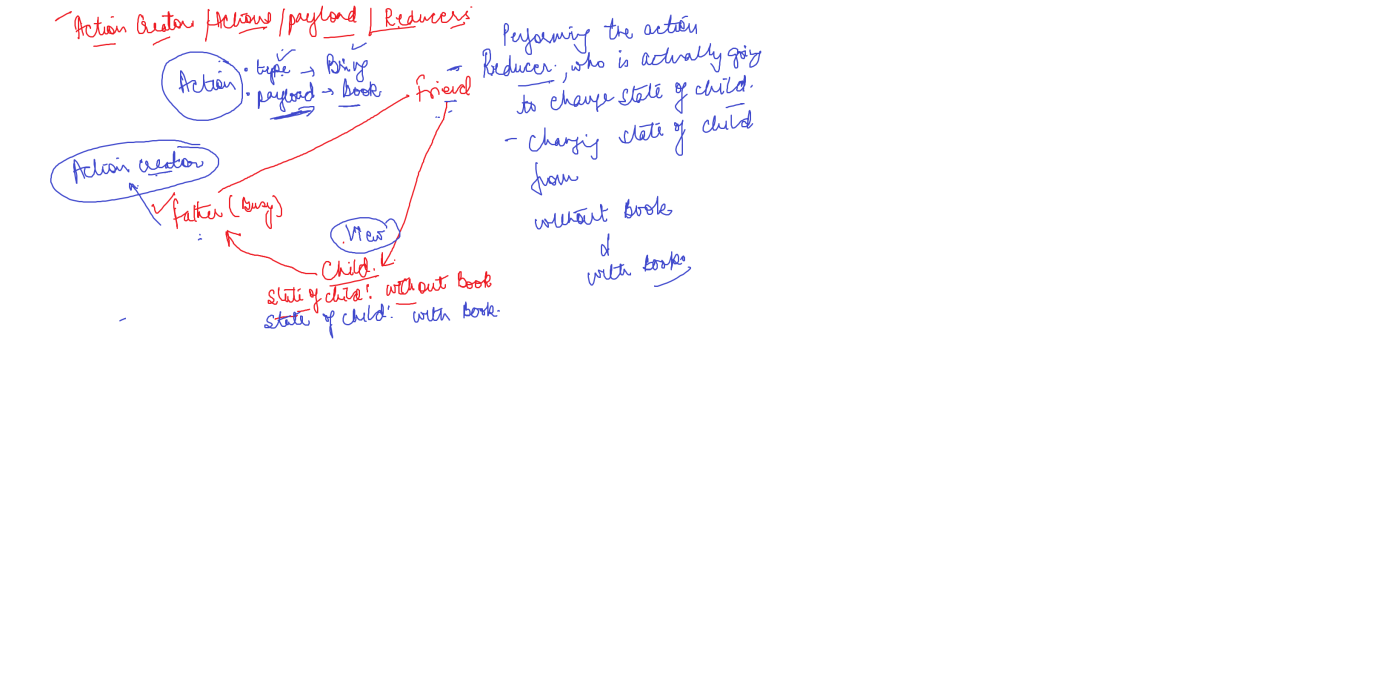 Action Creator / Actions / payload / Reducers
Action
• type → Bring
• payload → book
friend
Action creator
father (Busy)
View
Child.
State of child: without Book
State of child: with Book.
Performing the action
Reducer, who is actually going
to change state of child.
- changing state of child
from
without Book
&
with book.